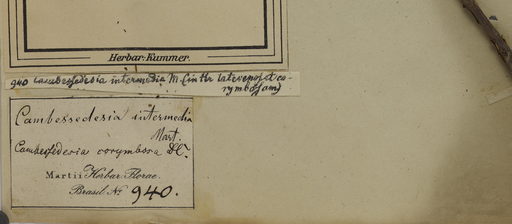 Herbar. Kummer.
940 Cambessedesia intermedia M. (inter latevenosa et co-
rymbosam)
Cambessedesia intermedia
Mart.
Cambessedesia corymbosa DC.
Martii Herbar. Florae
Brasil. No. 940.